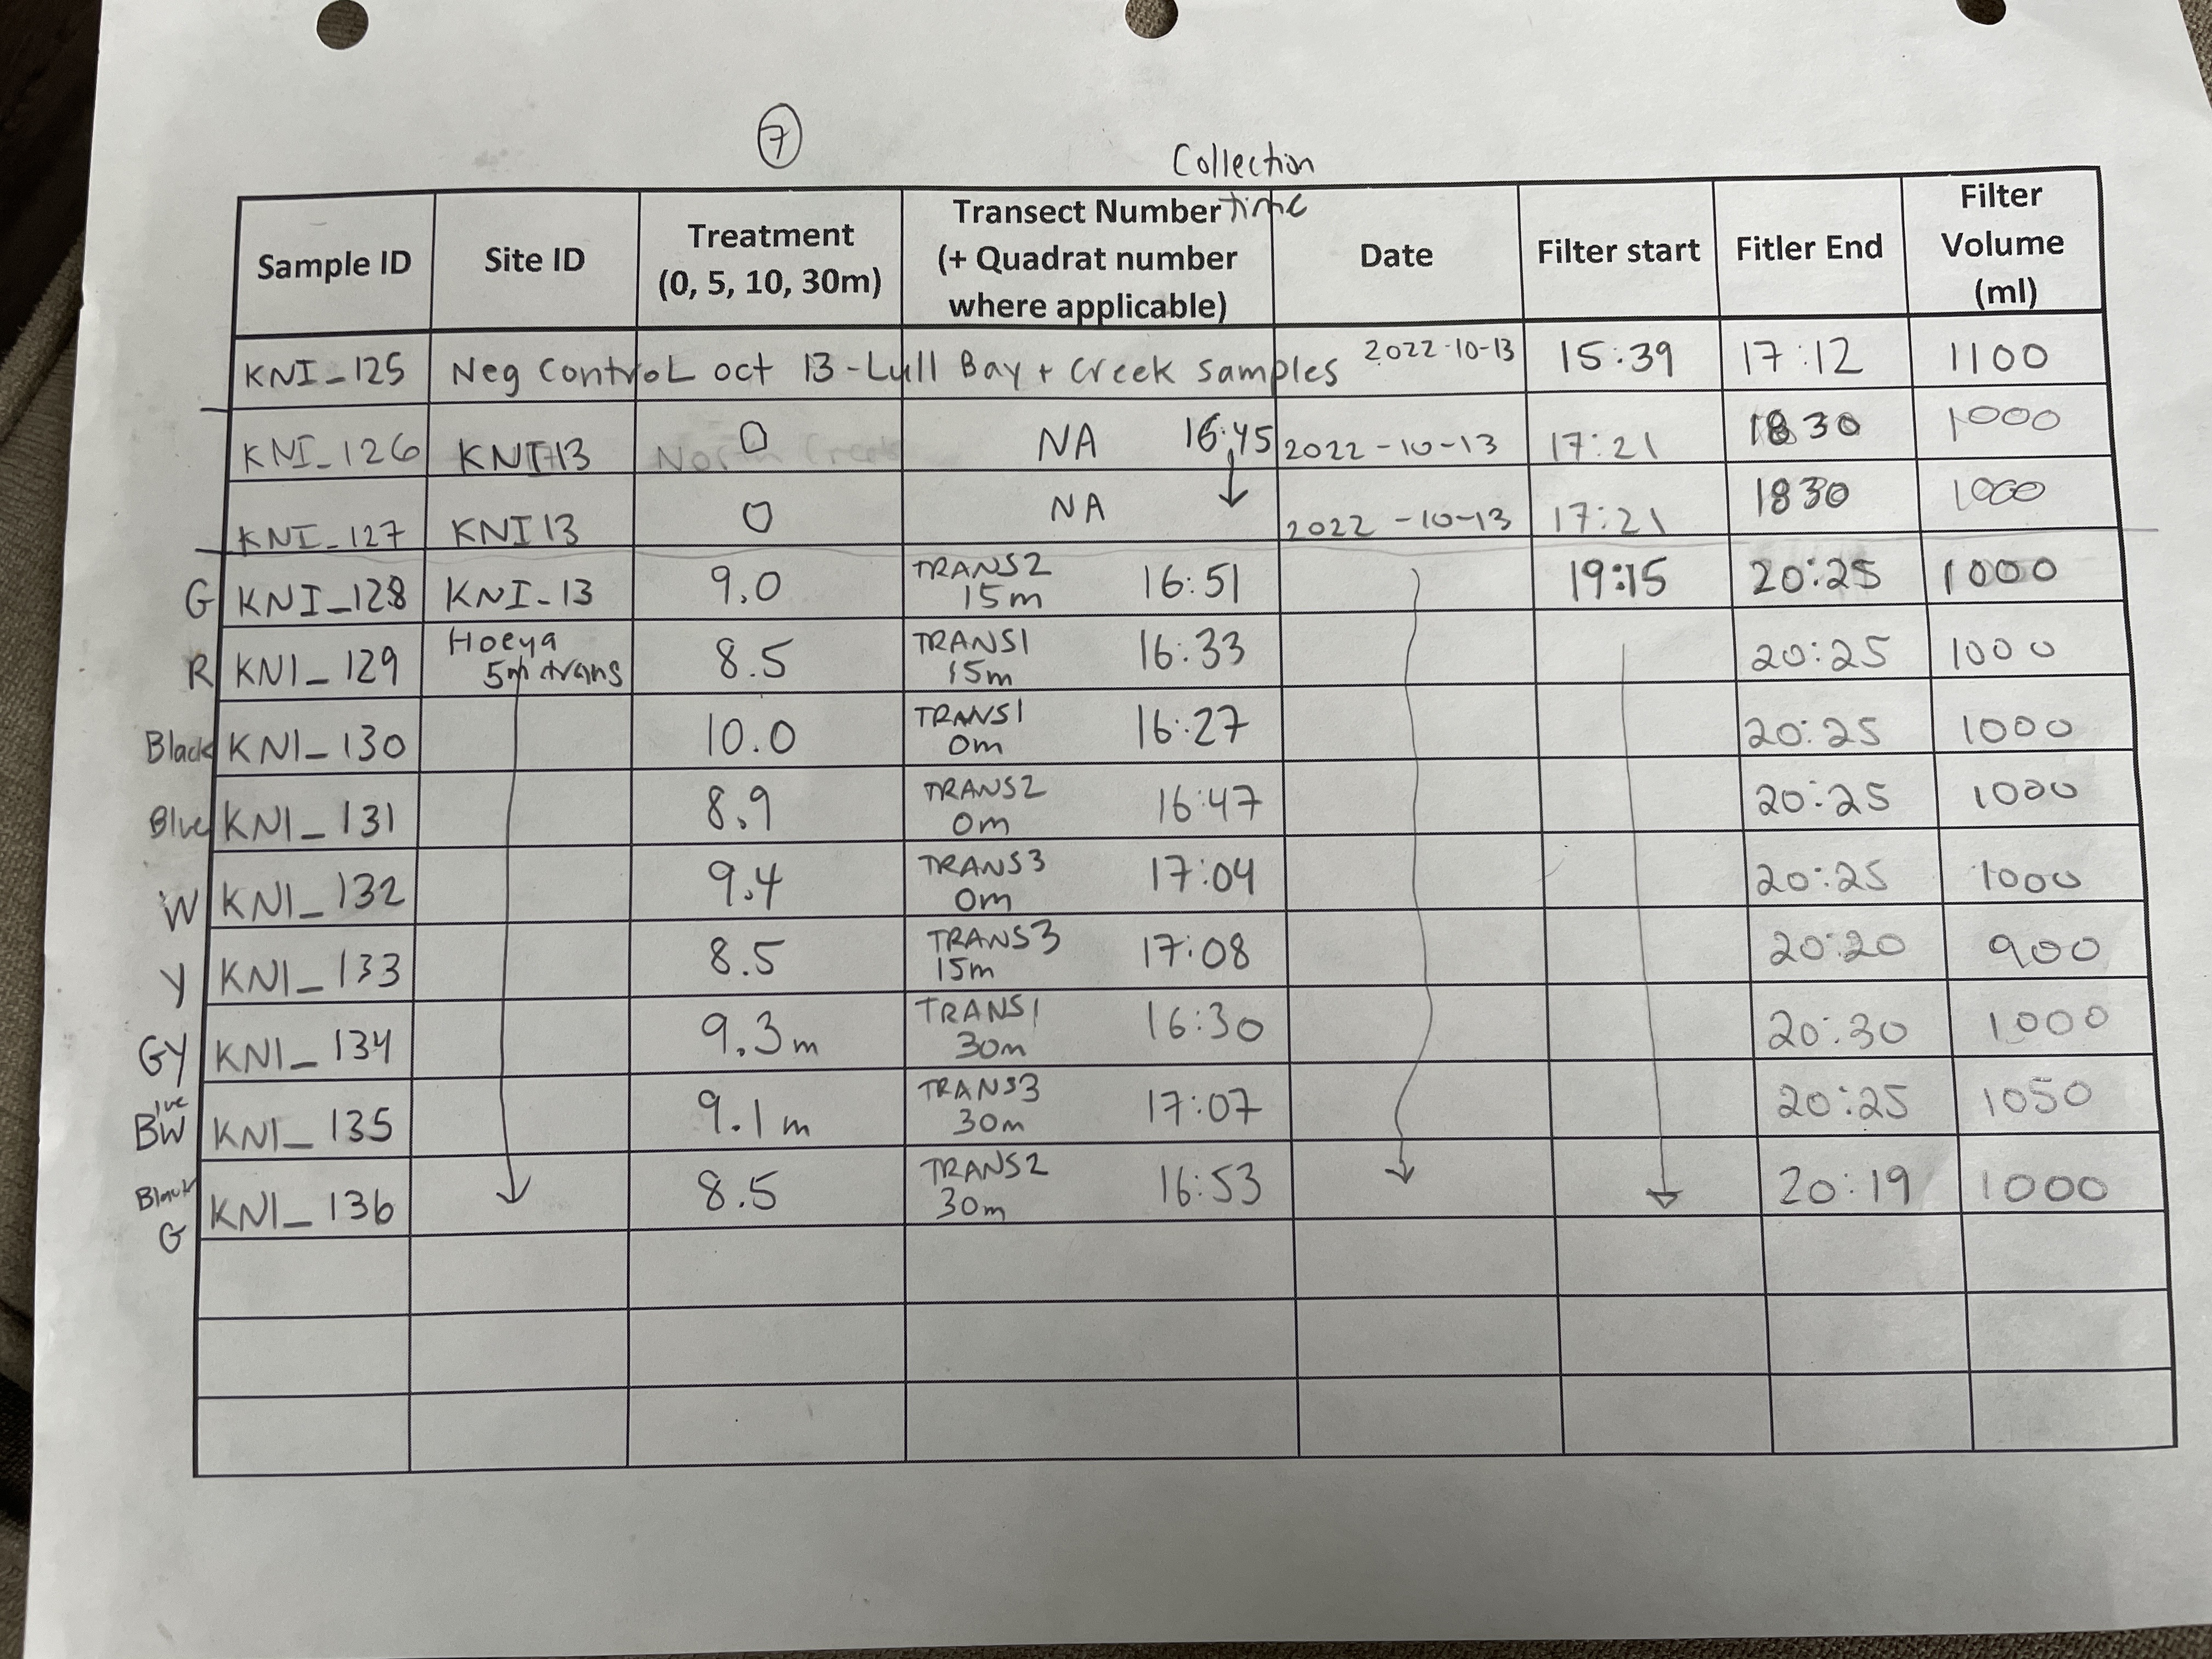 7
Collection
Sample ID | Site ID | Treatment (0, 5, 10, 30m) | Transect Number (+ Quadrat number where applicable) Time | Date | Filter start | Fitler End | Filter Volume (ml)
KNI_125 | Neg Control oct 13-Lull Bay + Creek Samples | 2022-10-13 | 15:39 | 17:12 | 1100
KNI_126 | KNI-13 | 0 | NA 16:45 | 2022-10-13 | 17:21 | 18 30 | 1000
KNI_127 | KNI 13 | 0 | NA ↓ | 2022-10-13 | 17:21 | 18 30 | 1000
G KNI_128 | KNI-13 | 9.0 | TRANS2 15m 16:51 | | 19:15 | 20:25 | 1000
R KNI_129 | Hoeya 5m trans | 8.5 | TRANS1 15m 16:33 | | | 20:25 | 1000
Black KNI_130 | | 10.0 | TRANS1 0m 16:27 | | | 20:25 | 1000
Blue KNI_131 | | 8.9 | TRANS2 0m 16:47 | | | 20:25 | 1000
W KNI_132 | | 9.4 | TRANS3 0m 17:04 | | | 20:25 | 1000
Y KNI_133 | | 8.5 | TRANS3 15m 17:08 | | | 20:20 | 900
GY KNI_134 | | 9.3m | TRANS1 30m 16:30 | | | 20:30 | 1000
BW KNI_135 | | 9.1m | TRANS3 30m 17:07 | | | 20:25 | 1050
Black G KNI_136 | ↓ | 8.5 | TRANS2 30m 16:53 | ↓ | ↓ | 20:19 | 1000